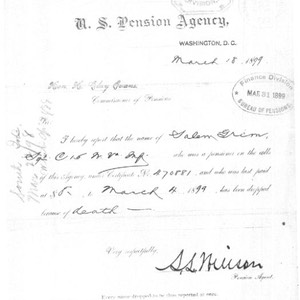 U. S. Pension Agency,
WASHINGTON, D. C.
March 18, 1899
Hon. H. Clay Evans
Commissioner of Pensions.
Finance Division
MAR 31 1899
BUREAU OF PENSIONS
I hereby report that the name of Salem
C 15 W. Va. who was a pensioner on the rolls
of this Agency under Certificate No. 470881, and who was last paid
at $8, to March 4, 1899, has been dropped
because of death
Very respectfully,
S. L. Willson
Pension Agent.